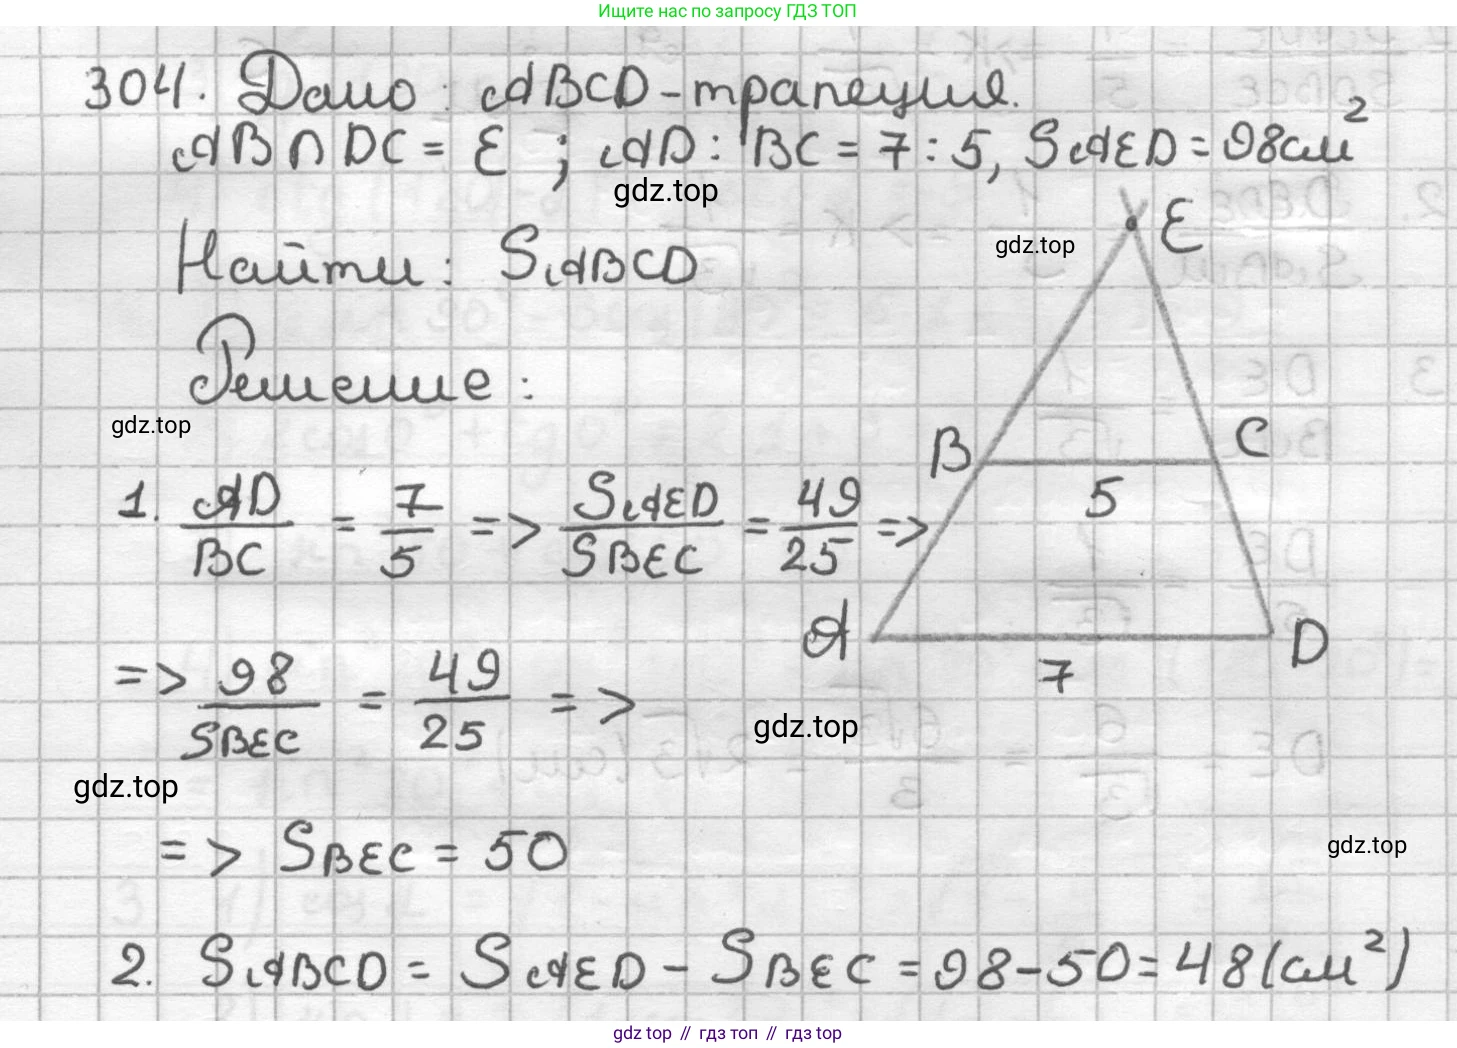 Ищите нас по запросу ГДЗ ТОП
304. Дано: ABCD-трапеция.
AB∩DC = E ; AD : BC = 7 : 5, SAED = 98см²
gdz.top
gdz.top
E
Найти: SABCD
Решение:
gdz.top
B
C
5
1. AD/BC = 7/5 => SAED/SBEC = 49/25 =>
A
D
7
=> 98/SBEC = 49/25 =>
gdz.top
gdz.top
=> SBEC = 50
gdz.top
2. SABCD = SAED - SBEC = 98-50 = 48(см²)
gdz.top // гдз топ // gdz.top